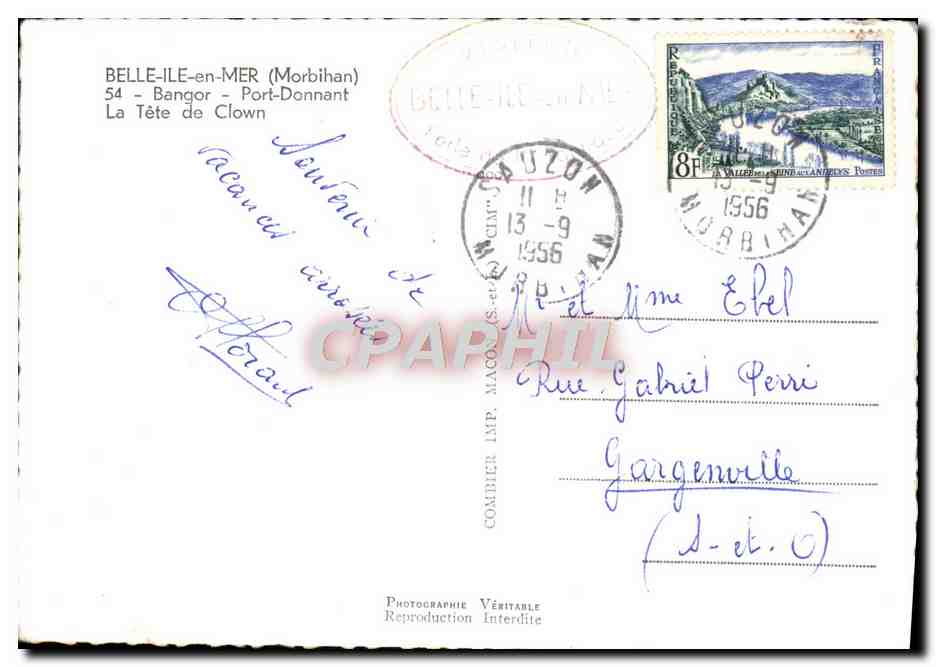 BELLE-ILE-en-MER (Morbihan)
54 - Bangor - Port-Donnant
La Tête de Clown
Souvenir de
vacances arrosées
BELLE-ILE-en-MER
REPUBLIQUE
FRANCAISE
8F
LA VALLEE DE LA SEINE AUX ANDELYS POSTES
SAUZON
13 -9
1956
MORBIHAN
SAUZON
13 -9
1956
MORBIHAN
COMBIER IMP. MACON (S.-et-L.) "CIM"
CPAPHIL
Mr et Mme Ebel
Rue Gabriel Perri
Gargenville
(S-et-O)
PHOTOGRAPHIE VÉRITABLE
Reproduction Interdite